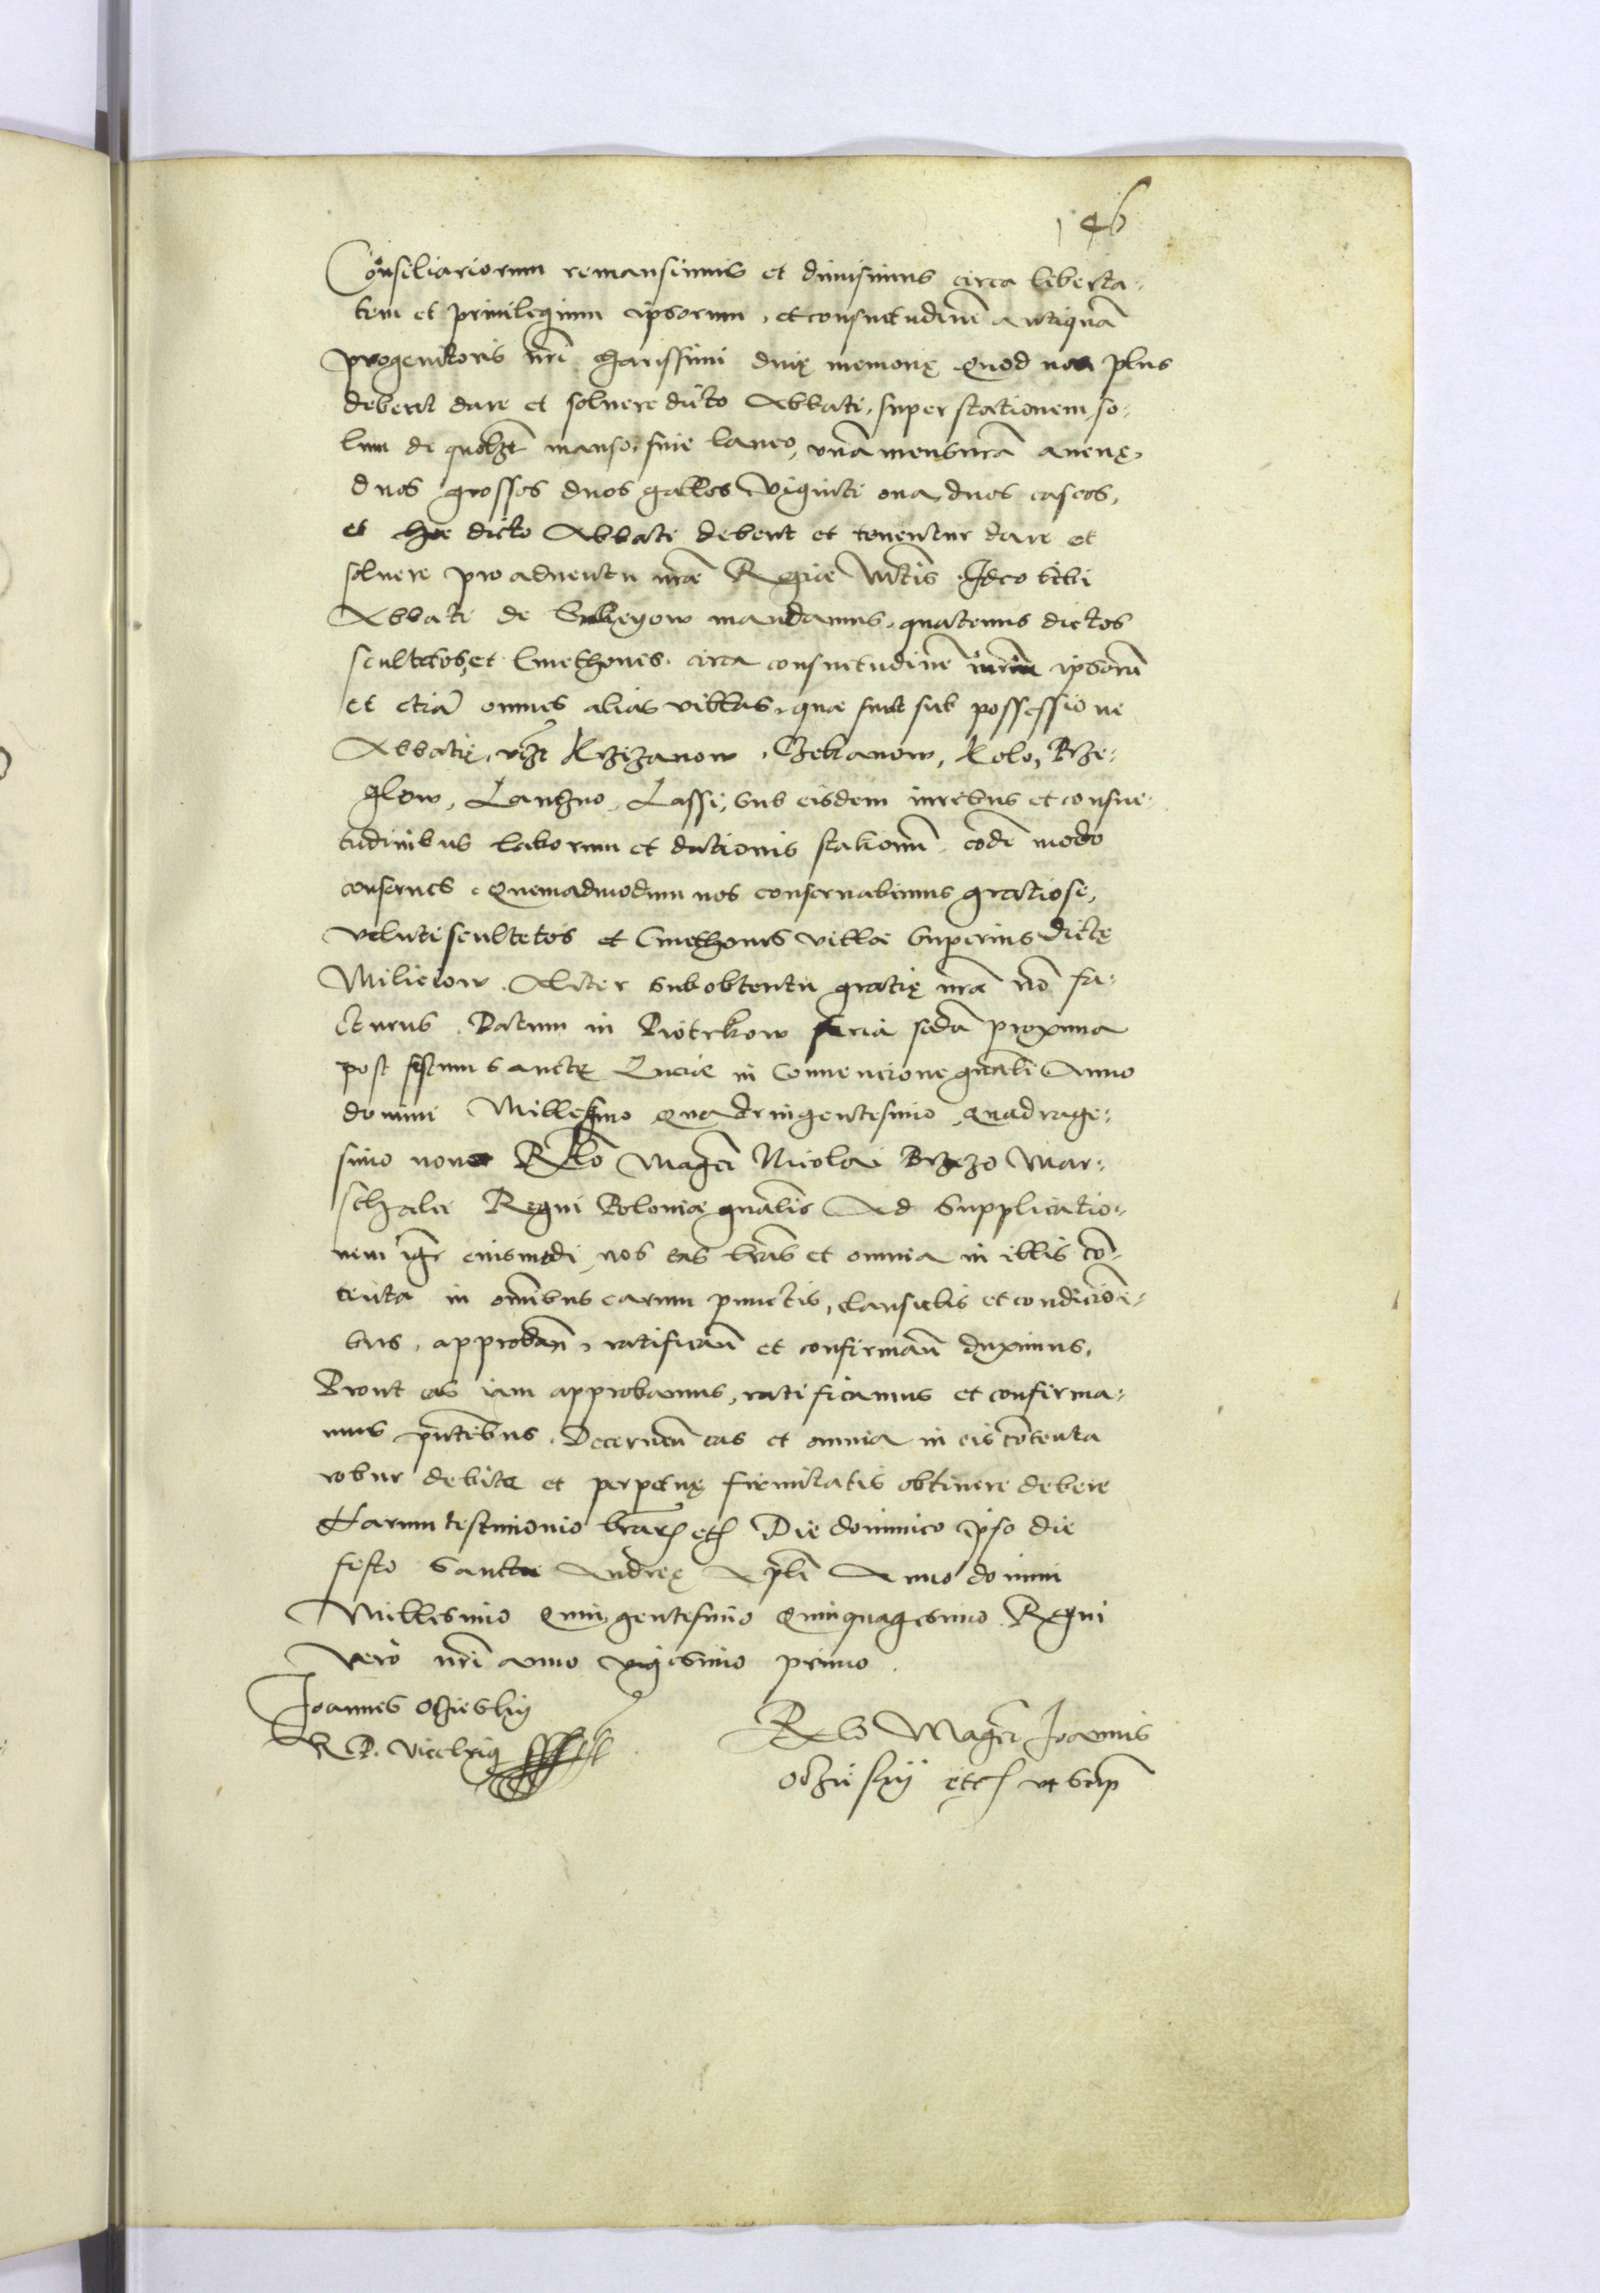 146
Consiliariorum remansimus et dimisimus circa liberta-
tem et privilegium ipsorum, et consuetudinē antiquā
progenitoris nrī charissimi divę memorię Quod non plus
debent dare et solvere dicto Abbati, super stationem, so-
lum de quolzt manso, sive laneo, unā mensurā avenę,
duos grossos duos gallos viginti ova duos caseos,
et hoc dicto Abbati debent et tenentur dare et
solvere pro adventu nrāe Regiae Mtīs Ideo tibi
Abbati de Suleyow mandamus, quatenus dictos
scultetos, et Cmethones circa consuetudinē ipsorū
et etiā omnes alias villas, quae sunt sub possessione
Abbatię, vzt Krzizanow, Czekanow, Kolo, Rze-
glow, Lanzno, Lassi, sub eisdem iuribus et consue-
tudinibus laborum et dationis stationū eodē modo
conserves. Quemadmodum nos conservabimus gratiose,
veluti scultetos et Cmethones villae superius dictę
Milieiow. Aliter sub obtentu gratię nrā nō fa-
cturus. Datum in Piotrkow feria scdā proxima
post festum sanctę Luciae in Conventione gnāli Anno
domini Millesimo Quadringentesimo Quadrage-
simo nono Rlō Magcī Nicolai Brzezo Mar-
schalci Regni Poloniae gnālis Ad supplicatio-
nem igr eiusmodi, nos eas lrās et omnia in illis cō-
tenta in omībus earum punctis, clausulis et conditioni-
bus, approbań, ratificań et confirmań duximus,
Prout eas iam approbamus, ratificamus et confirma-
mus pntībus. Decernen eas et omnia in eis cōtenta
robur debitę et perpetuę firmitatis obtinere debere
Harum testimonio lrarz etc Die dominico ipso die
festo Sancti Andreę Aplī Anno domini
Millesimo Quingentesimo Quinquagesimo. Regni
vero nrī anno vigesimo primo.
Joannes Oczieskij
R P. Vicclriꝫ
Rlō Magcī Joannis
Oczieskij etc ut supᵃ